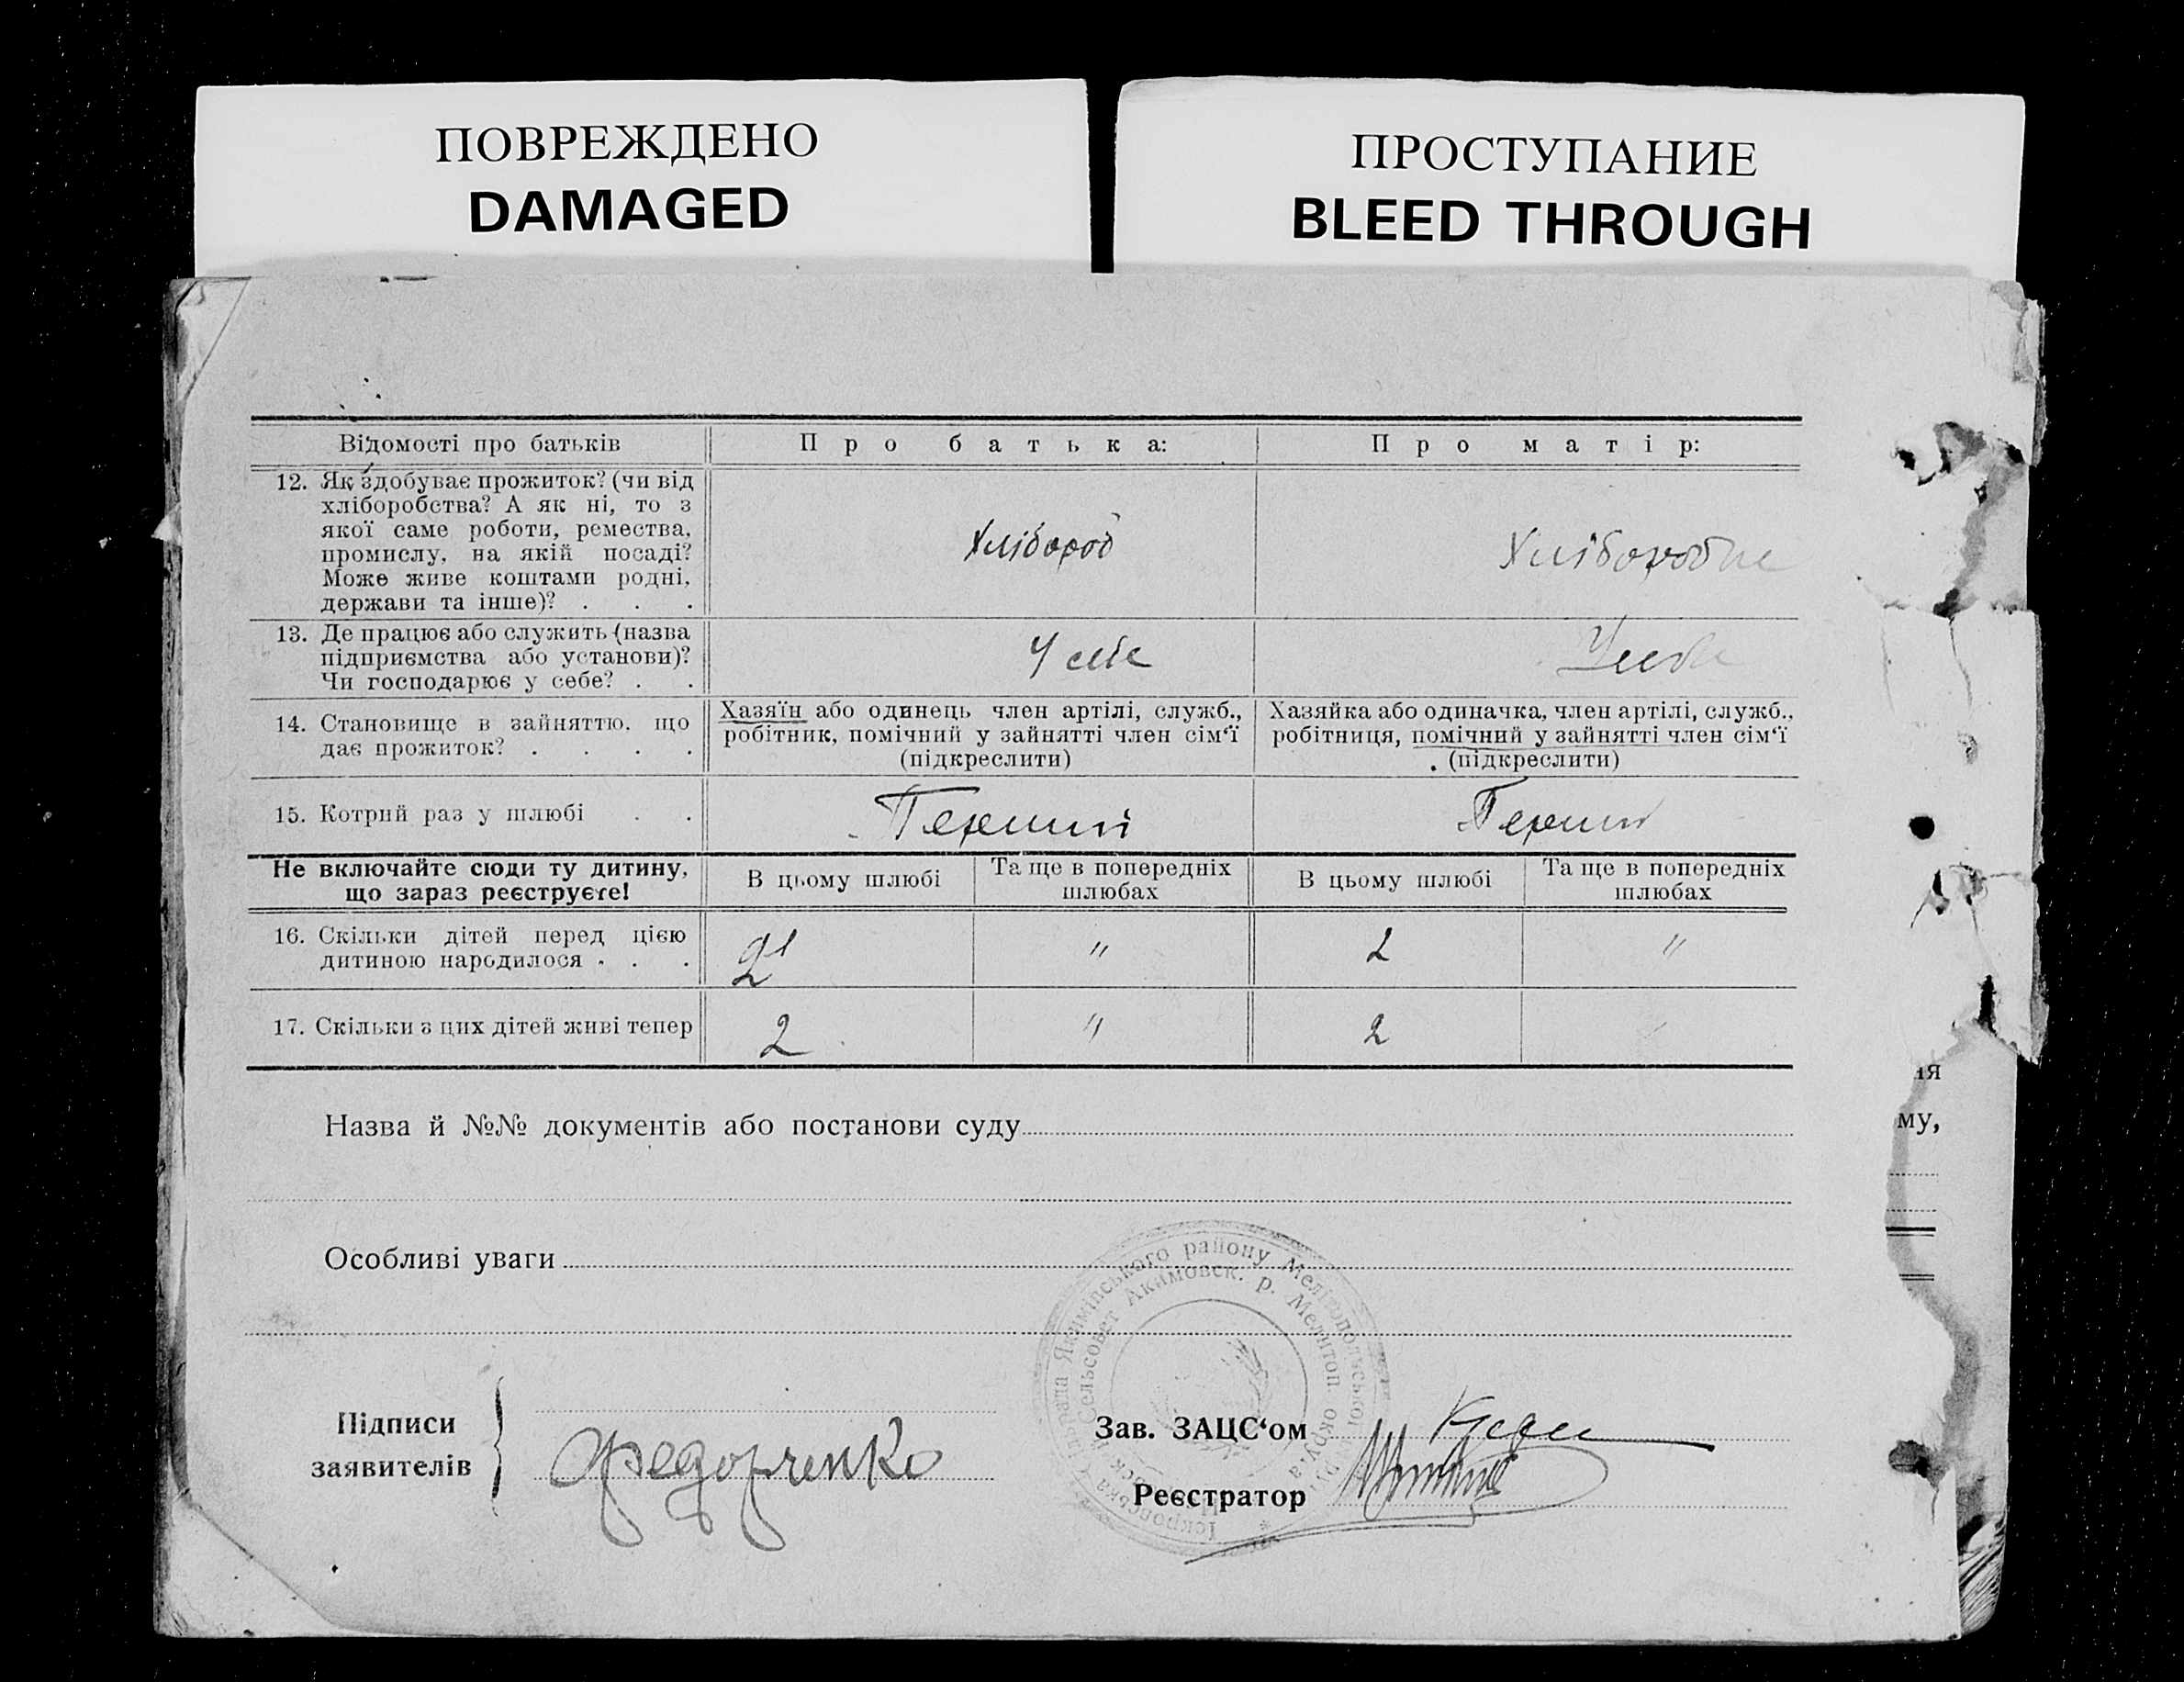 ПОВРЕЖДЕНО
DAMAGED
ПРОСТУПАНИЕ
BLEED THROUGH
Відомості про батьків
Про батька:
Про матір:
12. Як здобуває прожиток? (чи від
хліборобства? А як ні, то з
якої саме роботи, ремества,
промислу, на якій посаді?
Може живе коштами родні,
держави та інше)? . . .
Хлібороб
Хлібороб
13. Де працює або служить (назва
підприємства або установи)?
Чи господарює у себе? . .
У себе
У себе
14. Становище в зайняттю, що
дає прожиток? . . . .
Хазяїн або одинець член артілі, служб.,
робітник, помічний у зайнятті член сім‘ї
(підкреслити)
Хазяйка або одиначка, член артілі, служб.,
робітниця, помічний у зайнятті член сім‘ї
(підкреслити)
15. Котрий раз у шлюбі . .
Перший
Перший
Не включайте сюди ту дитину,
що зараз реєструєте!
В цьому шлюбі
Та ще в попередніх
шлюбах
В цьому шлюбі
Та ще в попередніх
шлюбах
16. Скільки дітей перед цією
дитиною народилося . . .
2
"
2
"
17. Скільки з цих дітей живі тепер
2
"
2
ія
му,
Назва й №№ документів або постанови суду
Особливі уваги
Якимівського району Мелітопольської
Сельсовет Акимовск. р. Мелитоп. округа
Підписи
заявителів
Федорченко
Зав. ЗАЦС‘ом
Реєстратор